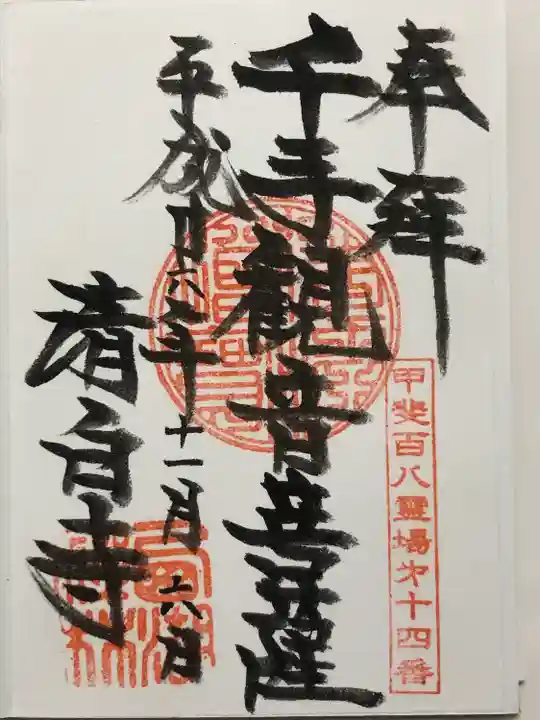 奉拜
甲斐百八霊場第十四番
千手観音菩薩
平成廿六年十一月六日
清白寺